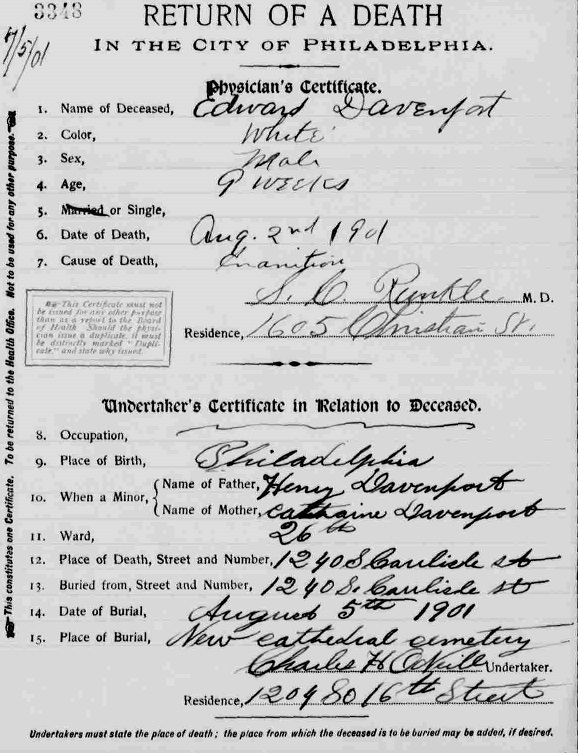 3348
RETURN OF A DEATH
IN THE CITY OF PHILADELPHIA.
8/5/01
Physician's Certificate.
1. Name of Deceased, Edward Davenport
2. Color, White
3. Sex, Male
4. Age, 9 weeks
5. Married or Single,
6. Date of Death, Aug. 2nd 1901
7. Cause of Death, Inanition
S. C. Runkle M. D.
Residence, 1605 Christian St.
This Certificate must not
be issued for any other purpose
than as a report to the Board
of Health Should the physi-
cian issue a duplicate, it must
be distinctly marked "Dupli-
cate," and state why issued.
Undertaker's Certificate in Relation to Deceased.
8. Occupation,
9. Place of Birth, Philadelphia
10. When a Minor, Name of Father, Henry Davenport
Name of Mother, Cathraine Davenport
11. Ward, 26th
12. Place of Death, Street and Number, 1240 S Carlisle st
13. Buried from, Street and Number, 1240 S. Carlisle st
14. Date of Burial, August 5th 1901
15. Place of Burial, New Cathedral cemetery
Charles H O'Neill Undertaker.
Residence, 1209 So 16th Street
Undertakers must state the place of death; the place from which the deceased is to be buried may be added, if desired.
This constitutes one Certificate. To be returned to the Health Office. Not to be used for any other purpose.